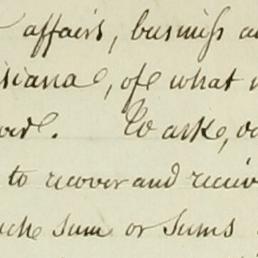 affairs, business a
isiana, of what
ver. To ask,
to recover and receiv
uch sum or sums